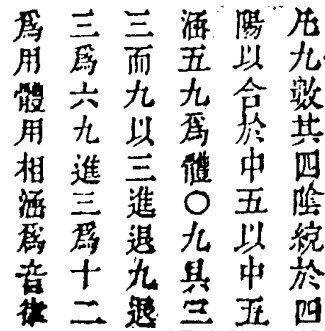 凡九數其四陰統於四
陽以合於中五以中五
涵五九爲體○九具三
三而九以三進退九退
三爲六九進三爲十二
爲用體用相涵爲音律